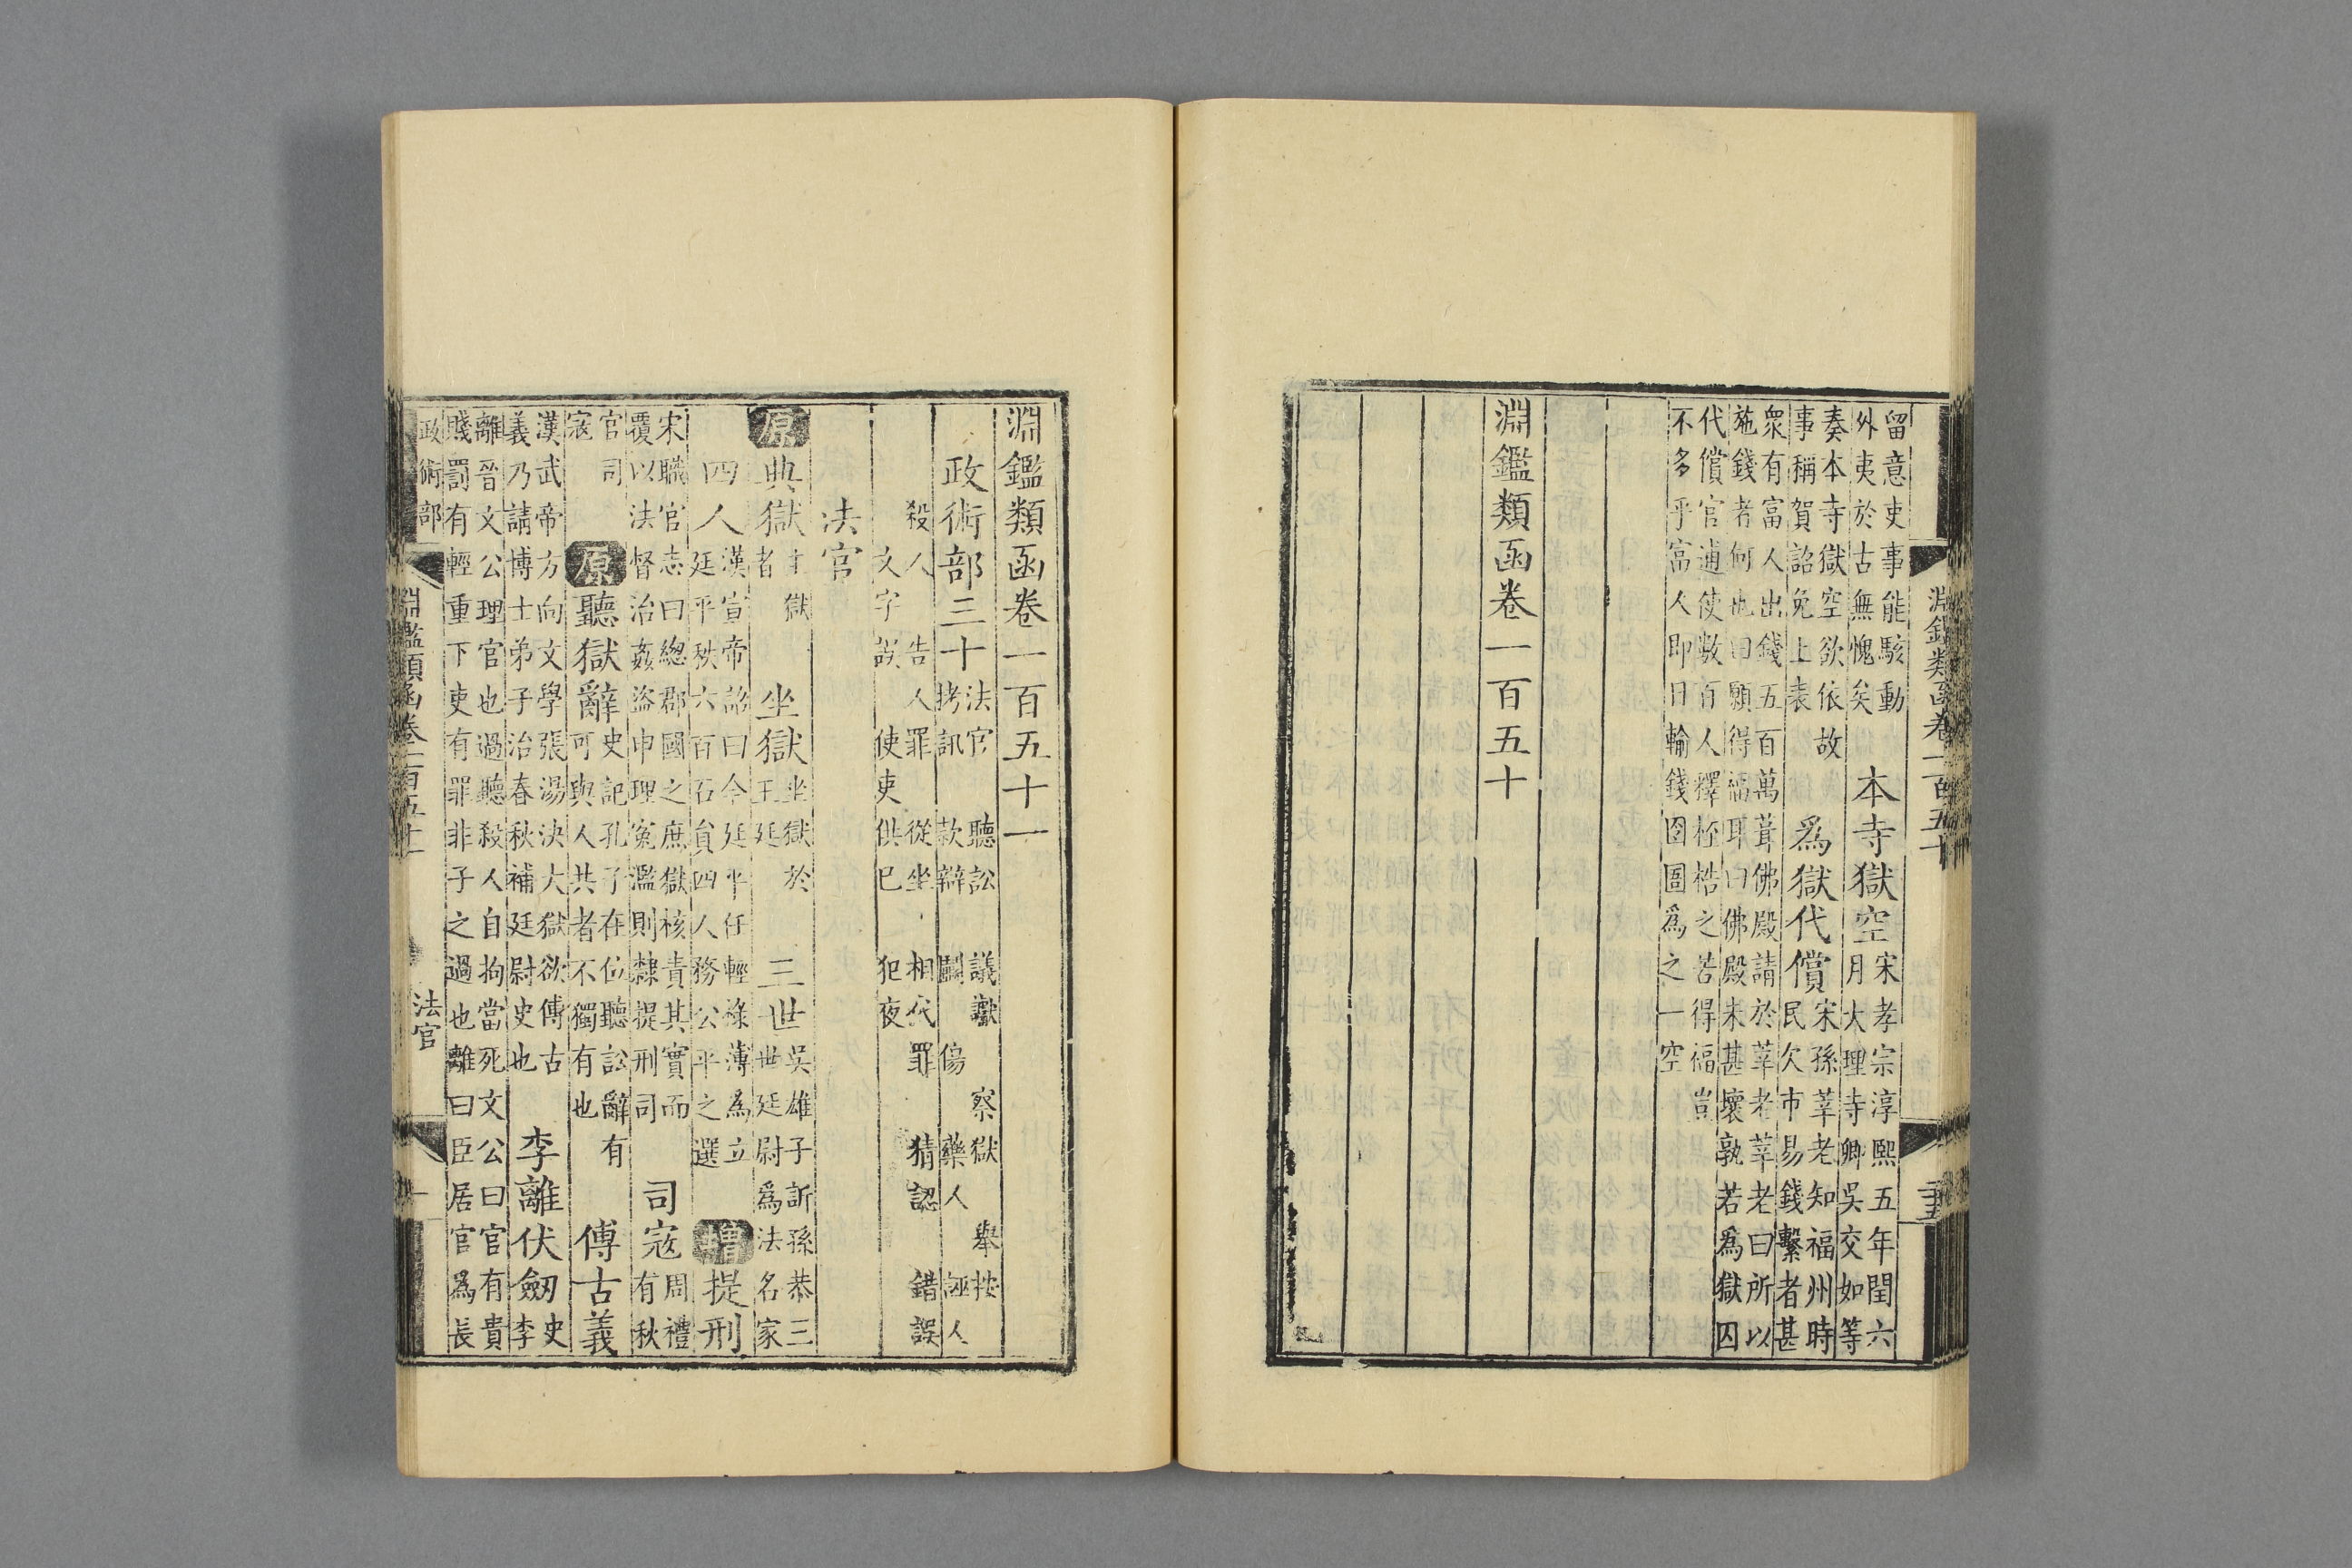 淵鑑類函卷一百五十
二十五
留意吏事能駭動
外夷於古無愧矣
本寺獄空
宋孝宗淳熙五年閏六
月大理寺卿吳交如等
奏本寺獄空欲依故
事稱賀詔免上表
爲獄代償
宋孫莘老知福州時
民欠市易錢繫者甚
衆有富人出錢五百萬葺佛殿請於莘老莘老曰所以
施錢者何也曰願得福耳曰佛殿未甚壞孰若爲獄囚
代償官逋使數百人釋桎梏之苦得福豈
不多乎富人即日輸錢囹圄爲之一空
淵鑑類函卷一百五十
淵鑑類函卷一百五十一
政術部三十
法官 聽訟 議讞 察獄 舉按
拷訊 款辯 鬭傷 藥人 誣人
殺人 告人罪 從坐 相代罪 猜認 錯誤
文字誤 使吏供已 犯夜
法官
原 典獄
主獄
者
坐獄
坐獄於
王廷
三世
吳雄子訢孫恭三
世廷尉爲法名家
四人
漢宣帝詔曰今廷平任輕祿薄爲立
廷平秩六百石員四人務公平之選
增 提刑
宋職官志曰總郡國之庶獄核責其實而
覆以法督治姦盜申理寃濫則隸提刑司
司寇
周禮
有秋
官司
寇
原 聽獄辭
史記孔子在位聽訟辭有
可與人共者不獨有也
傅古義
漢武帝方向文學張湯決大獄欲傅古
義乃請博士弟子治春秋補廷尉史也
李離伏劒
史
李
離晉文公理官也過聽殺人自拘當死文公曰官有貴
賤罰有輕重下吏有罪非子之過也離曰臣居官爲長
政術部 淵鑑類函卷一百五十一 法官 一